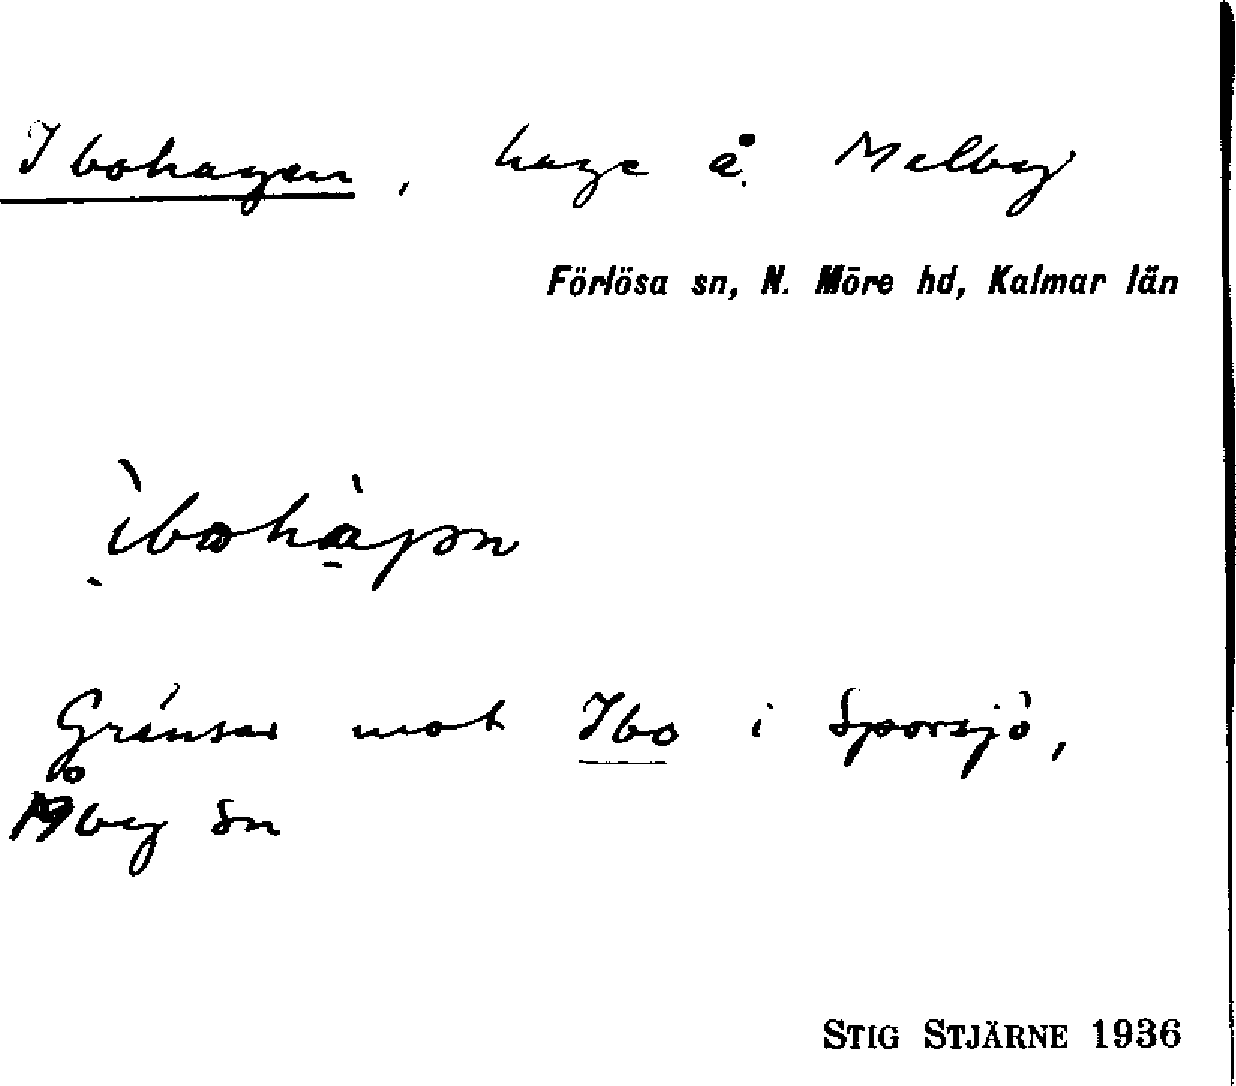 Ibohagen, hage å Melby
Förlösa sn, N. Möre hd, Kalmar län
Gränsar mot Ibo i Sporsjö,
Åby sn
STIG STJÄRNE 1936